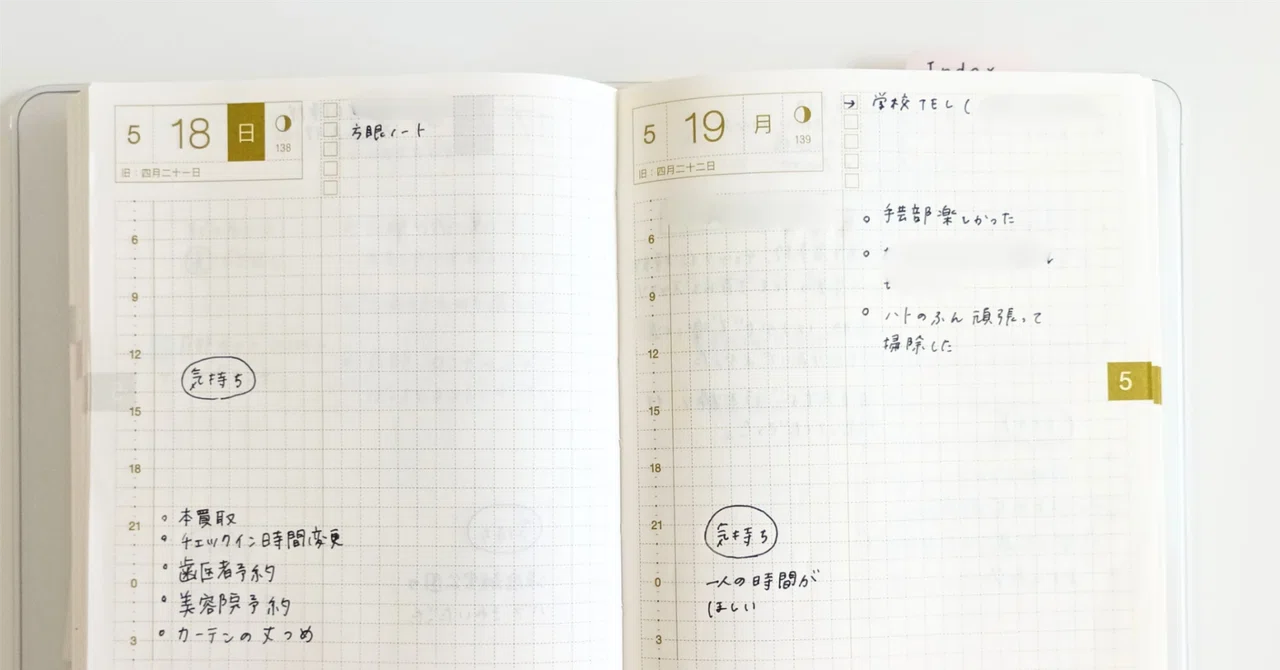 Index
5 18 日
138
旧:四月二十一日
方眼ノート
6
9
12
気持ち
15
18
21
0
3
本買取
チェックイン日時間変更
歯医者予約
美容院予約
カーテンの丈つめ
5 19 月
139
旧:四月二十二日
→ 学校TEL(
6
9
12
15
18
21
0
3
手芸部楽しかった
ハトのふん頑張って
掃除した
5
気持ち
一人の時間が
ほしい